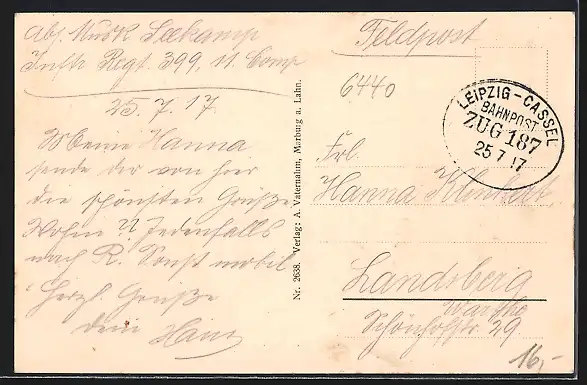 Abs. Musk Seekamp
Inftr Regt. 399, 11. Comp
25.7.17.
Meine Hanna
sende dir von hier
die schönsten Grüße
Wohin ?? Jedenfalls
nach R. Sonst mobil
Herzl. Grüße
dein Hans
Nr. 2638. Verlag: A. Vaternahm, Marburg a. Lahn.
Feldpost
6440
LEIPZIG - CASSEL
BAHNPOST
ZUG 187
25 7 17
Frl.
Hanna
Landsberg
Warthe
Schönhofstr. 29
16,-